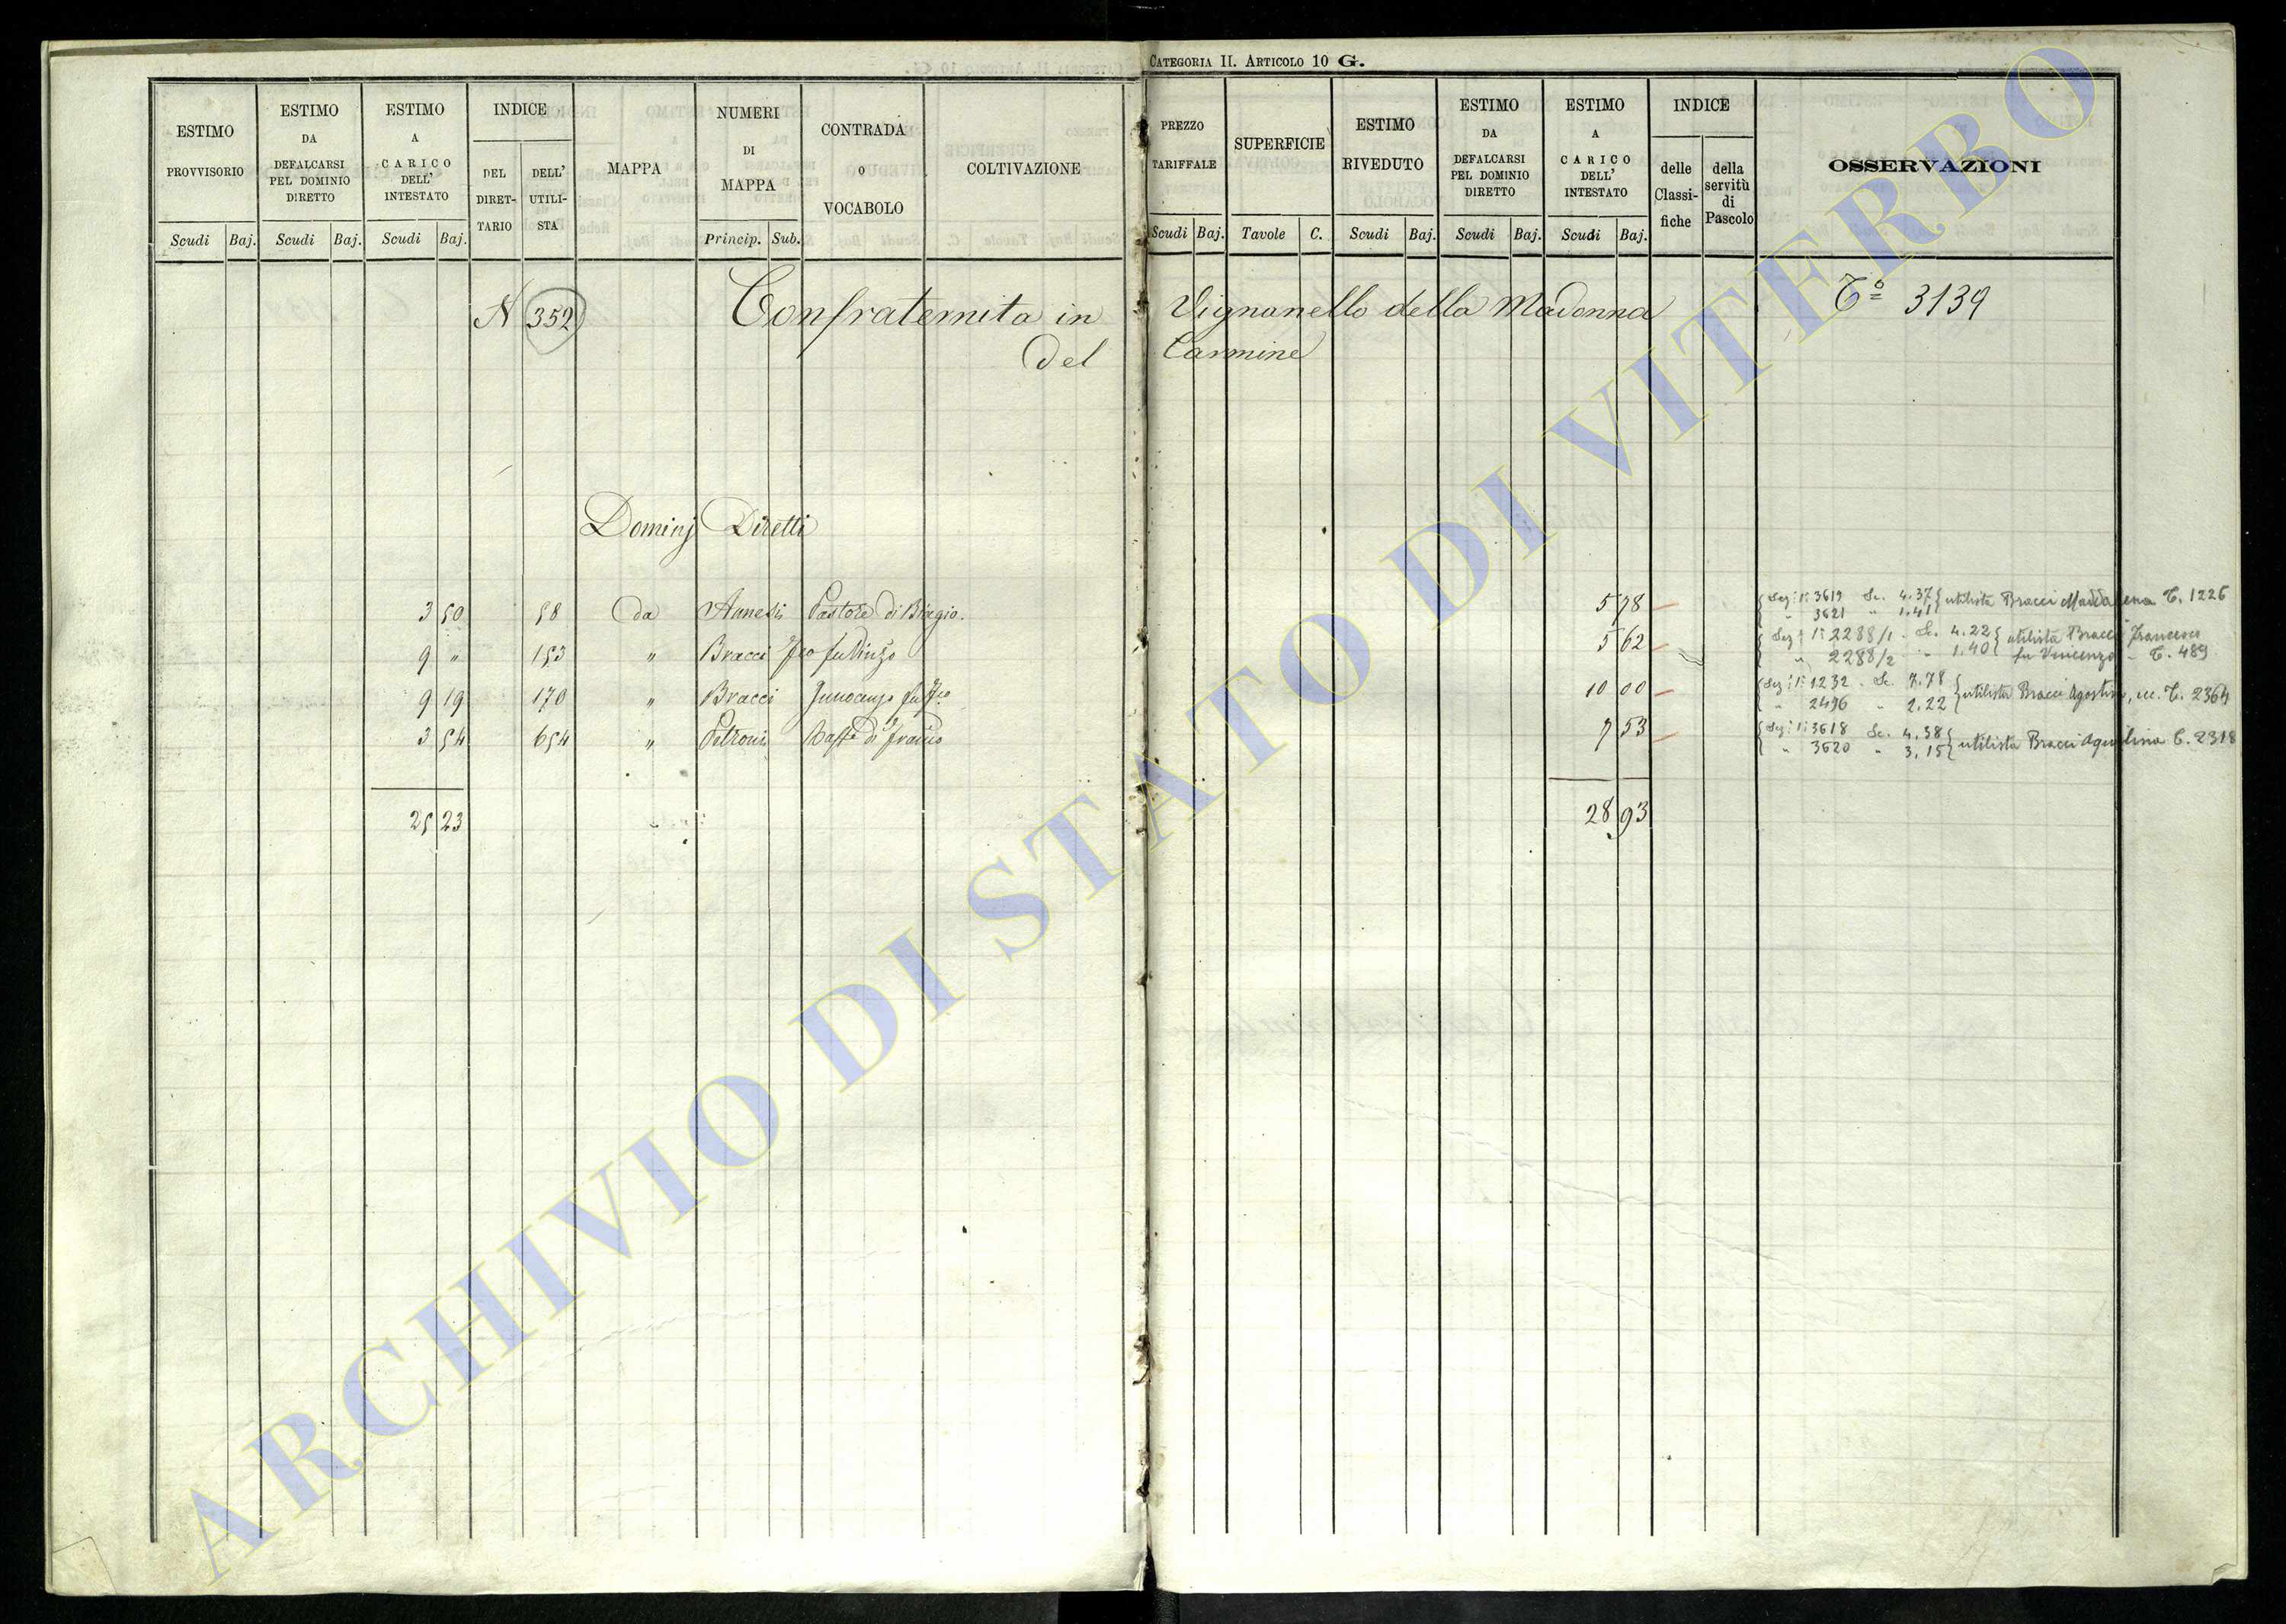 CATEGORIA II. ARTICOLO 10 G.
ESTIMO PROVVISORIO
Scudi Baj.
ESTIMO DA DEFALCARSI PEL DOMINIO DIRETTO
Scudi Baj.
ESTIMO A CARICO DELL' INTESTATO
Scudi Baj.
INDICE
DEL DIRET-TARIO
DELL' UTILI-STA
MAPPA
NUMERI DI MAPPA
Princip. Sub.
CONTRADA O VOCABOLO
COLTIVAZIONE
PREZZO TARIFFALE
Scudi Baj.
SUPERFICIE
Tavole C.
ESTIMO RIVEDUTO
Scudi Baj.
ESTIMO DA DEFALCARSI PEL DOMINIO DIRETTO
Scudi Baj.
ESTIMO A CARICO DELL' INTESTATO
Scudi Baj.
INDICE
delle Classi-fiche
della servitù di Pascolo
OSSERVAZIONI
N 352 Confraternita in Vignanello della Madonna T.º 3139
del Carmine
Dominj Diretti
3 50 58 da Annesi Pastore di Biagio. 5 78
9 " 153 " Bracci 5 62
9 19 170 " Bracci 10 00
3 54 654 " Petroni 7 53
25 23 28 93
3619 Sc. 4.37 utilista Bracci Maddalena T. 1226
" 3621 " 1.41
2288/1 Sc. 4.22 utilista Bracci Francesco
" 2288/2 " 1.40 fu Vincenzo - T. 489
1232 Sc. 7.78
" 2496 " 2.22 utilista Bracci Agostino, ecc. T. 2364
3618 Sc. 4.38
" 3620 " 3.15 utilista Bracci Aquilina T. 2318
ARCHIVIO DI STATO DI VITERBO